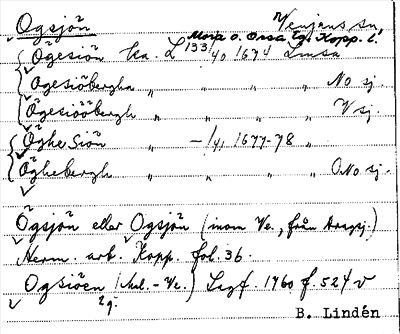 Ögsjön Venjans sn,
Mora o. Orsa tgl. Kopp. l.
Ögesiön ka. L 133/40 1674 Linsa
Ögesiöbergha " " " NO sj.
Ögesiööbergh " " " V sj.
Öghe Siön " —/41 1677-78 "
Öghebergh " " " ONo sj.
Ögsjön eller Ogsjön (inom Ve., från
Herm. art. Kopp. fol. 36.
Ogsiöen (Mal. - Ve.) Lagf. 1760 f. 524 v
B. Lindén